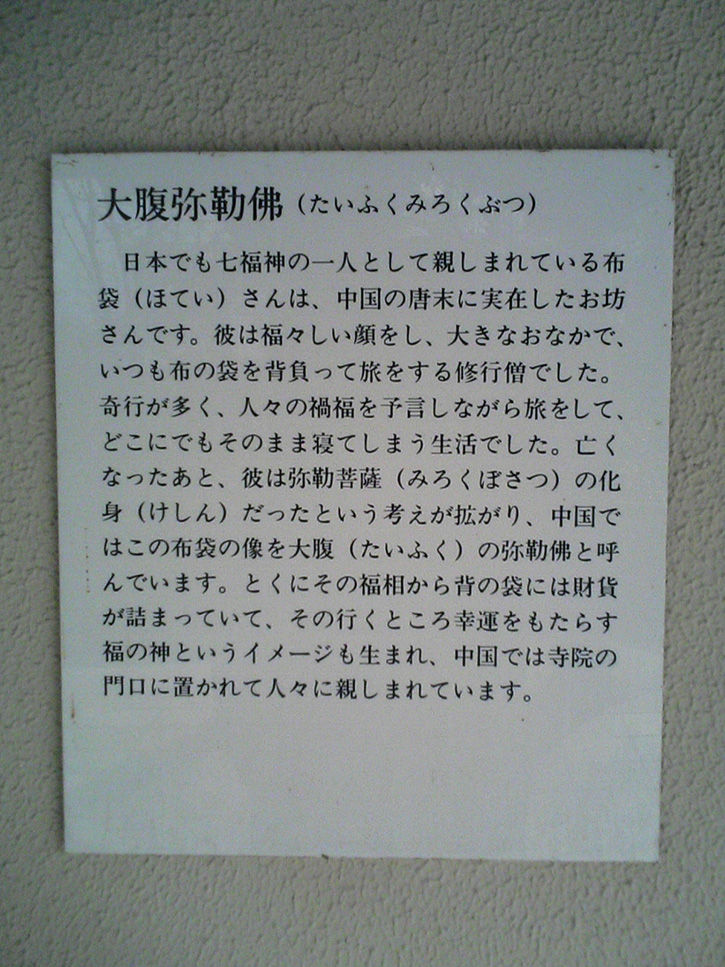 大腹弥勒佛（たいふくみろくぶつ）
日本でも七福神の一人として親しまれている布
袋（ほてい）さんは、中国の唐末に実在したお坊
さんです。彼は福々しい顔をし、大きなおなかで、
いつも布の袋を背負って旅をする修行僧でした。
奇行が多く、人々の禍福を予言しながら旅をして、
どこにでもそのまま寝てしまう生活でした。亡く
なったあと、彼は弥勒菩薩（みろくぼさつ）の化
身（けしん）だったという考えが拡がり、中国で
はこの布袋の像を大腹（たいふく）の弥勒佛と呼
んでいます。とくにその福相から背の袋には財貨
が詰まっていて、その行くところ幸運をもたらす
福の神というイメージも生まれ、中国では寺院の
門口に置かれて人々に親しまれています。